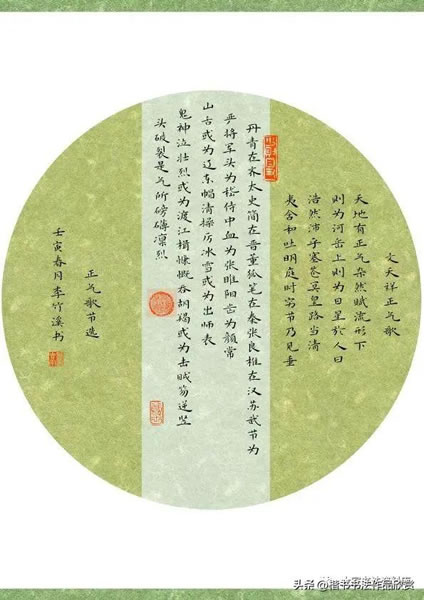 文天祥正气歌
天地有正气杂然赋流形下
则为河岳上则为日星於人曰
浩然沛乎塞苍冥皇路当清
夷含和吐明庭时穷节乃见垂
丹青在齐太史简在晋董狐笔在秦张良椎在汉苏武节为
严将军头为嵇侍中血为张睢阳齿为颜常
山舌或为辽东帽清操厉冰雪或为出师表
鬼神泣壮烈或为渡江楫慷慨吞胡羯或为击贼笏逆竖
头破裂是气所磅礴凛烈
正气歌节选
壬寅春月李竹溪书
头条@楷书书法作品欣赏